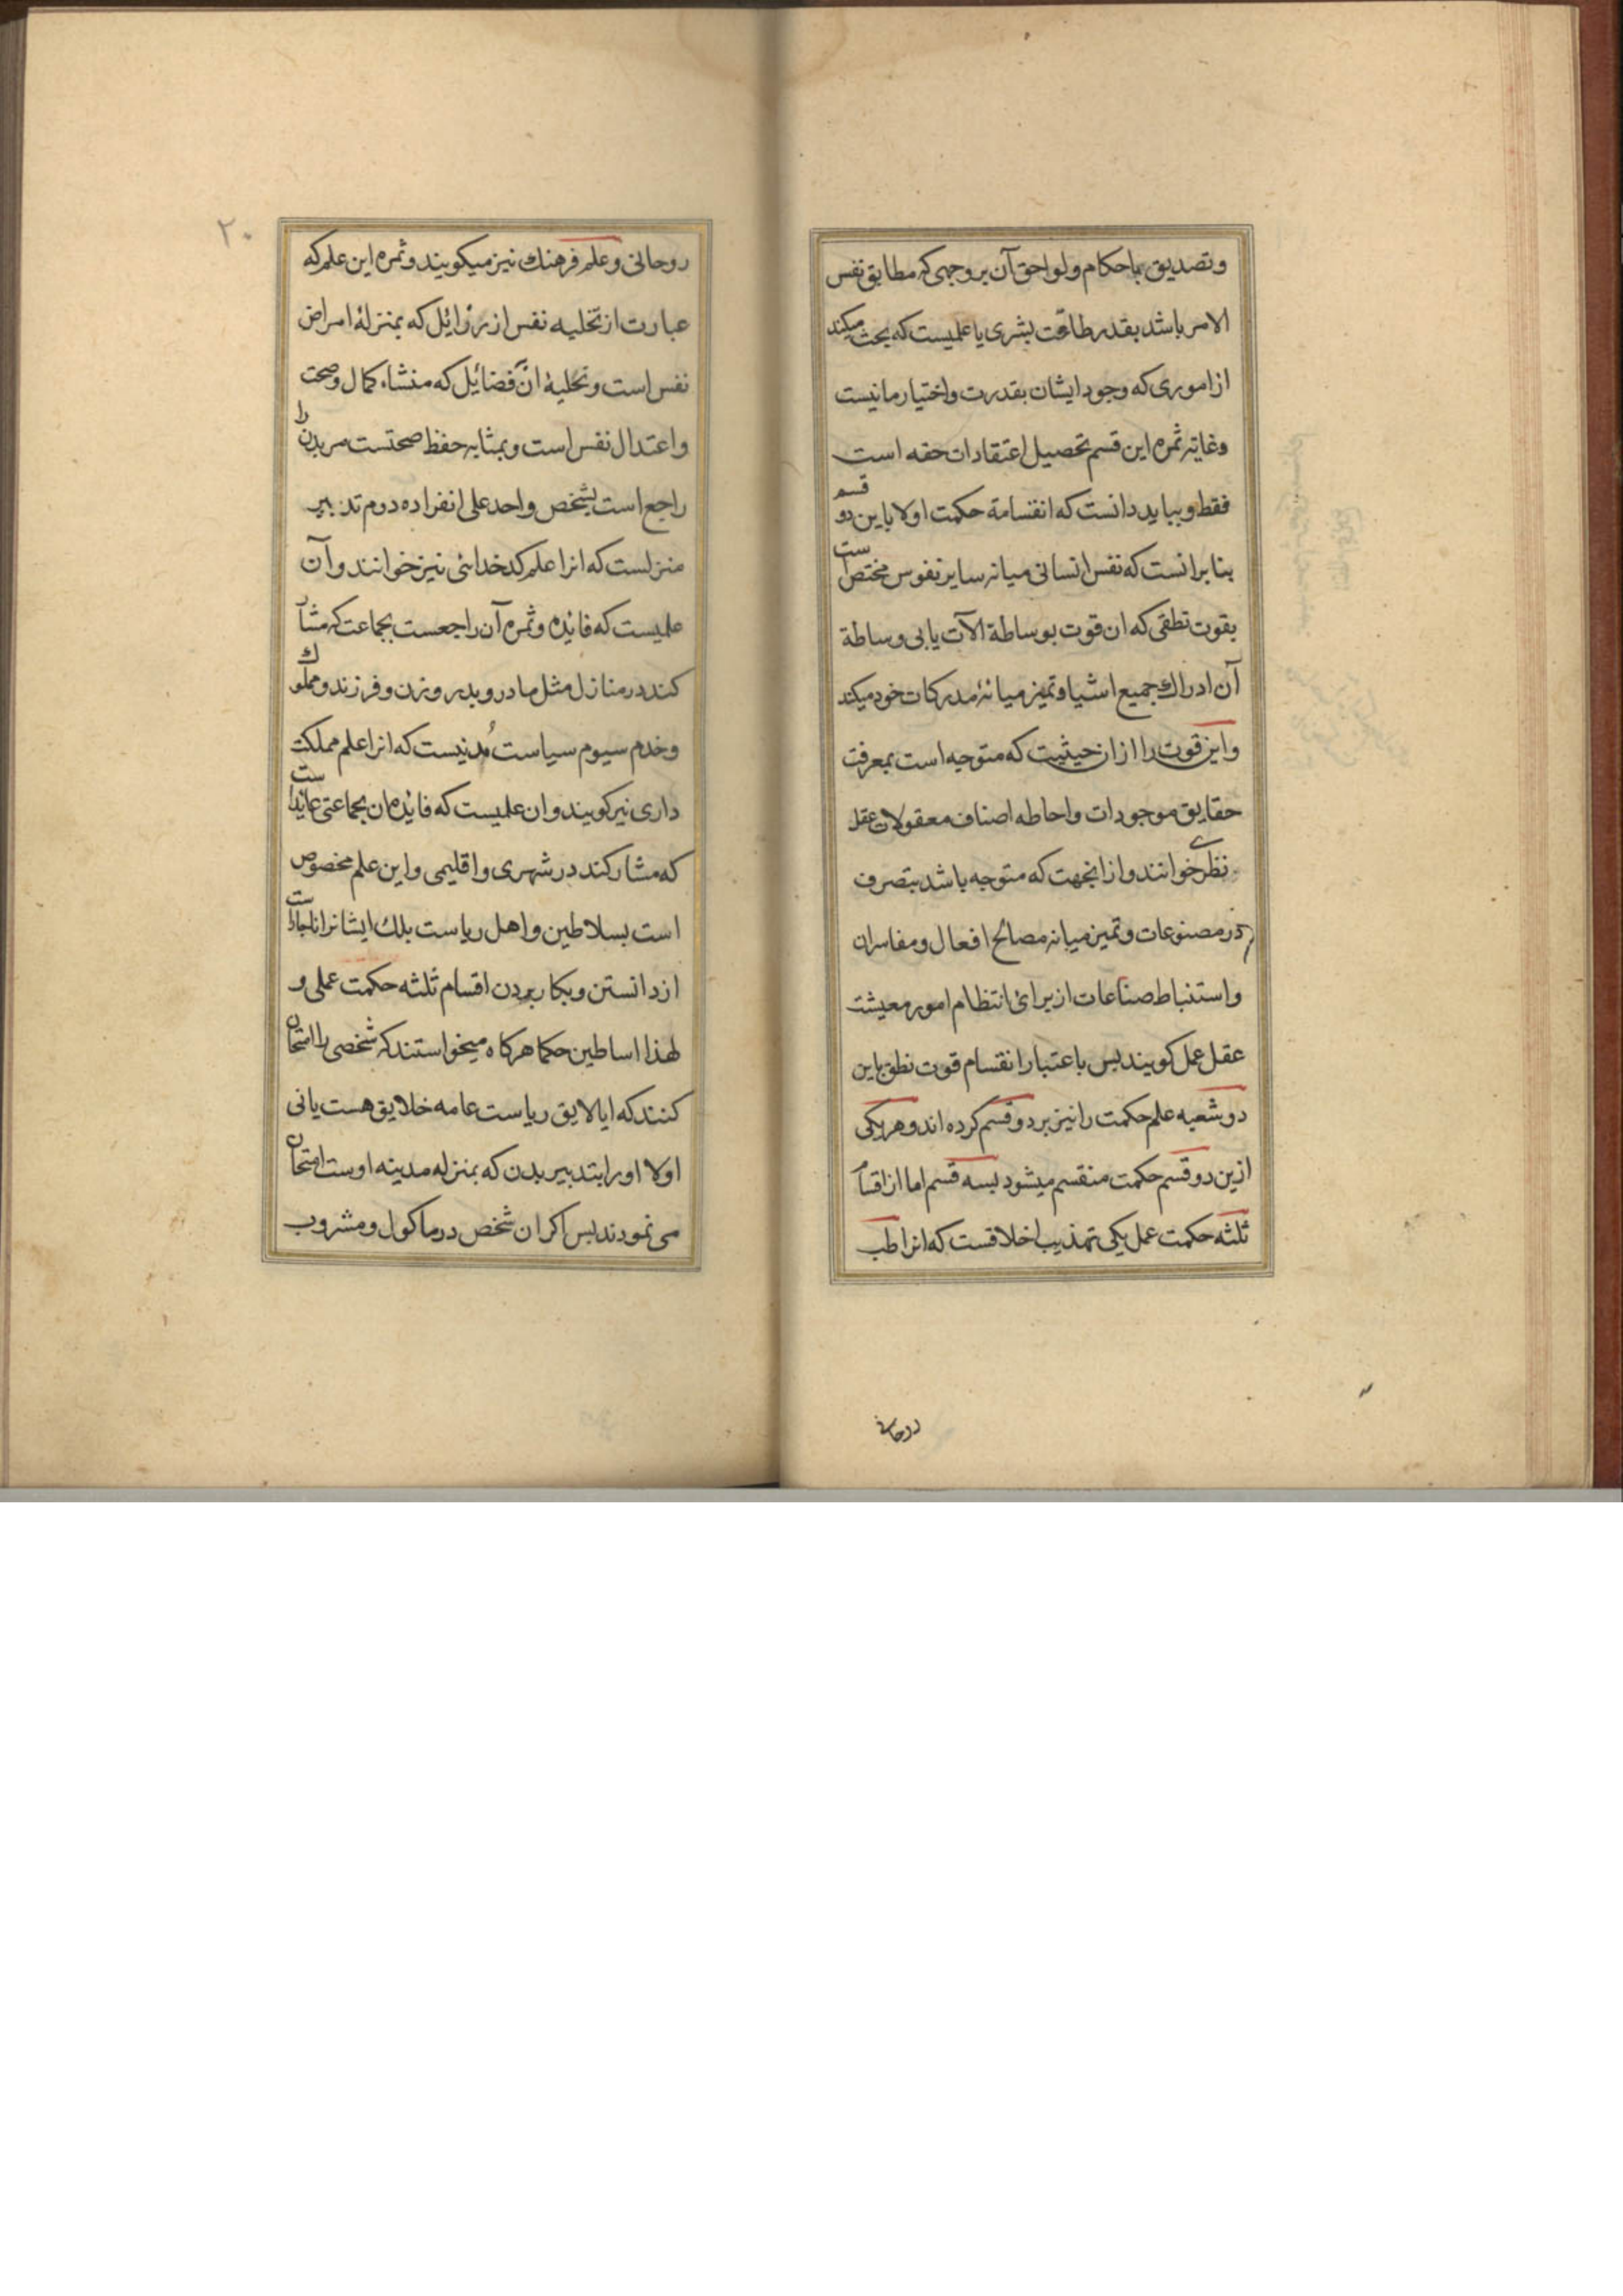 وتصدیق باحکام ولواحق آن بر وجهی که مطابق نفس
الامر باشد بقدر طاقت بشری یا علمیست که بحث میکند
از اموری که وجود ایشان بقدرت واختیار ما نیست
وغایة ثمره این قسم تحصیل اعتقادات حقه است
فقط وبباید دانست که انقسامة حکمت اولا باین دو قسم
بنا برانست که نفس انسانی میانه سایر نفوس مختص ست
بقوت نطقی که ان قوت بوساطة الآت یا بی وساطة
آن ادراك جمیع اشیا وتمیز میانهٔ مدرکات خود میکند
واین قوت را از ان حیثیت که متوجه است بمعرفت
حقایق موجودات واحاطه اصناف معقولات عقل
نظری خوانند واز انجهت که متوجه باشد بتصرف
در مصنوعات وتمیز میانه مصالح افعال ومفاسد ان
واستنباط صناعات از برائ انتظام امور معیشت
عقل عمل کویند بس باعتبار انقسام قوت نطق باین
دو شعبه علم حکمت را نیز بر دو قسم کرده اند وهر یکی
ازین دو قسم حکمت منقسم میشود بسه قسم اما از اقسام
ثلثه حکمت عمل یکی تهذیب اخلاقست که انرا طب
روحانی
۲۰
روحانی وعلم فرهنك نیز میکویند وثمره این علم که
عبارت از تخلیه نفس از رذایل که بمنزلهٔ امراض
نفس است وتحلیهٔ ان فضایل که منشاء کمال وصحت
واعتدال نفس است وبمثابه حفظ صحتست مر بدن را
راجع است بشخص واحد علی انفراده دوم تدبیر
منزلست که انرا علم کدخدائی نیز خوانند وآن
علمیست که فائده وثمره آن راجعست بجماعت که مشار
کند در منازل مثل مادر وپدر وزن وفرزند ومملوك
وخدم سیوم سیاست مُدنیست که انرا علم مملکت
داری نیز کویند وان علمیست که فائده ان بجماعتی عایدا ست
که مشارکند در شهری واقلیمی واین علم مخصوص
است بسلاطین واهل ریاست بلك ایشانرا ناچار است
از دانستن وبکار بردن اقسام ثلثه حکمت عملی و
لهذا اساطین حکما هرکاه میخواستند که شخصی را امتحان
کنند که ایا لایق ریاست عامه خلایق هست یا نی
اولا او را بتدبیر بدن که بمنزله مدینه اوست امتحان
می نمودند بس اکر ان شخص در ماکول ومشروب